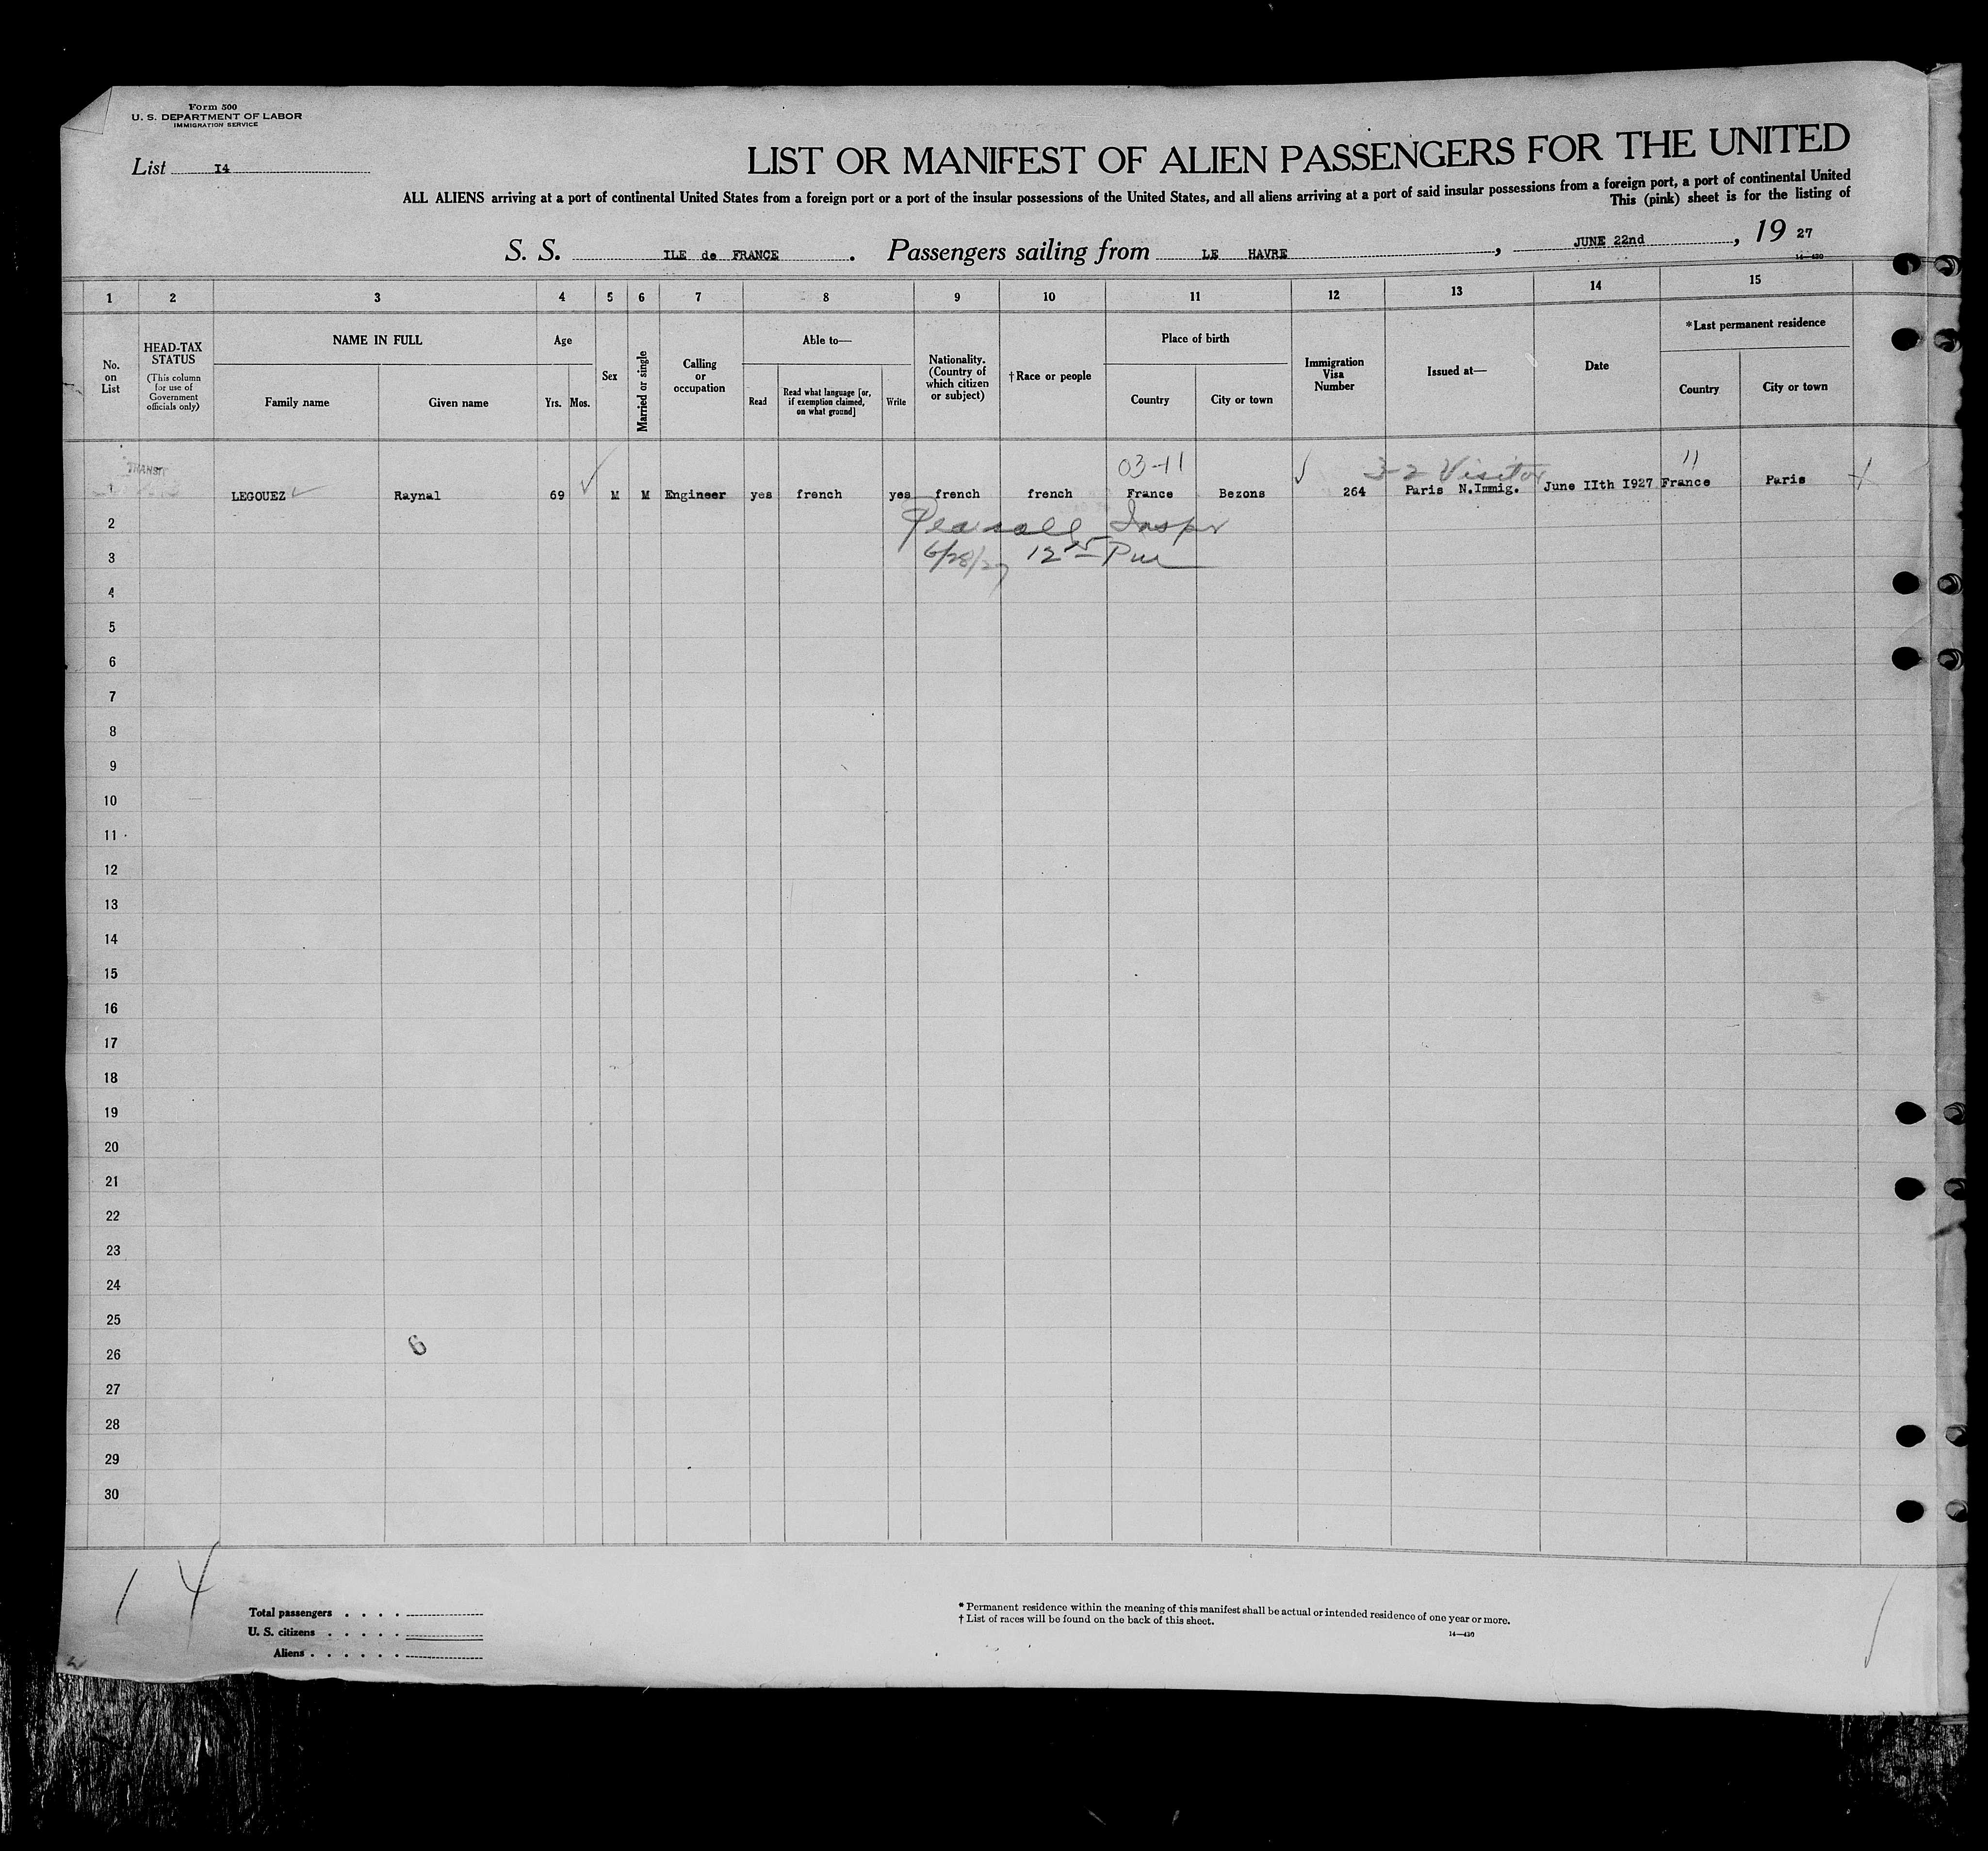 Form 500
U. S. DEPARTMENT OF LABOR
IMMIGRATION SERVICE
List I4
LIST OR MANIFEST OF ALIEN PASSENGERS FOR THE UNITED
ALL ALIENS arriving at a port of continental United States from a foreign port or a port of the insular possessions of the United States, and all aliens arriving at a port of said insular possessions from a foreign port, a port of continental United
This (pink) sheet is for the listing of
S. S. ILE de FRANCE. Passengers sailing from LE HAVRE, JUNE 22nd, 19 27
14—430
1 2 3 4 5 6 7 8 9 10 11 12 13 14 15
No. on List
HEAD-TAX STATUS
(This column for use of Government officials only)
NAME IN FULL
Family name
Given name
Age
Yrs. Mos.
Sex
Married or single
Calling or occupation
Able to—
Read
Read what language [or, if exemption claimed, on what ground]
Write
Nationality. (Country of which citizen or subject)
†Race or people
Place of birth
Country
City or town
Immigration Visa Number
Issued at—
Date
*Last permanent residence
Country
City or town
TRANSIT 03-11 3-2 Visitor 11
1 LEGOUEZ Raynal 69 M M Engineer yes french yes french french France Bezons 264 Paris N.Immig. June IIth I927 France Paris
2 Inspr
3 6/28/27 12 15 Pm
4
5
6
7
8
9
10
11
12
13
14
15
16
17
18
19
20
21
22
23
24
25
26
6
27
28
29
30
14
Total passengers . . . .
U. S. citizens . . . . .
Aliens . . . . . .
* Permanent residence within the meaning of this manifest shall be actual or intended residence of one year or more.
† List of races will be found on the back of this sheet.
14—430